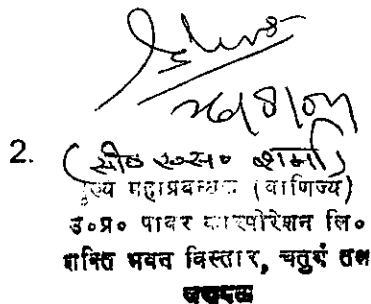 2. (सी० एस० शर्मा)
मुख्य महाप्रबन्धक (वाणिज्य)
उ०प्र० पावर कारपोरेशन लि०
शक्ति भवन विस्तार, चतुर्थ तल
लखनऊ